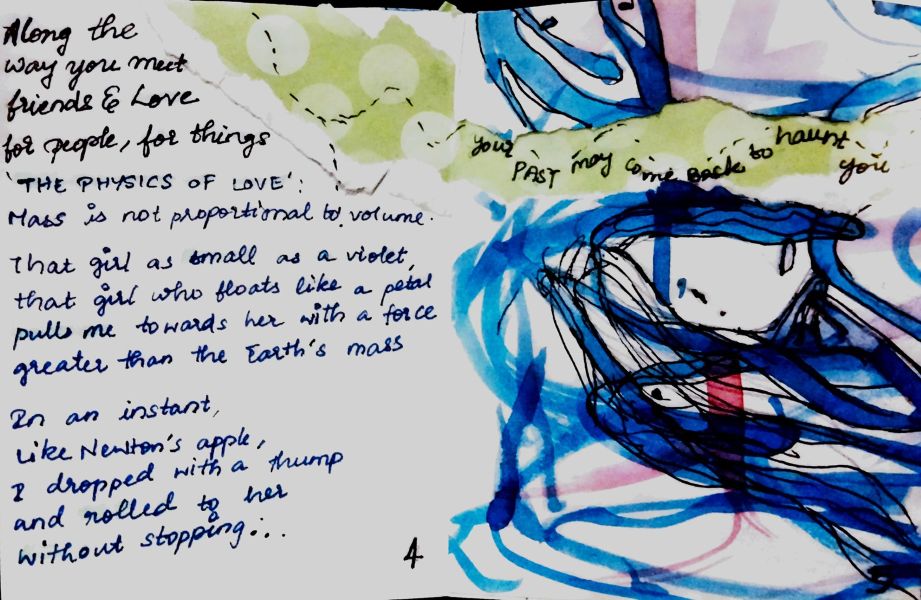 Along the
way you meet
friends & Love
for people, for things
'THE PHYSICS OF LOVE':
Mass is not proportional to volume.
That girl as small as a violet,
that girl who floats like a petal
pulls me towards her with a force
greater than the Earth's mass
In an instant,
Like Newton's apple,
I dropped with a thump
and rolled to her
without stopping...
4
your PAST may come BACK to haunt you